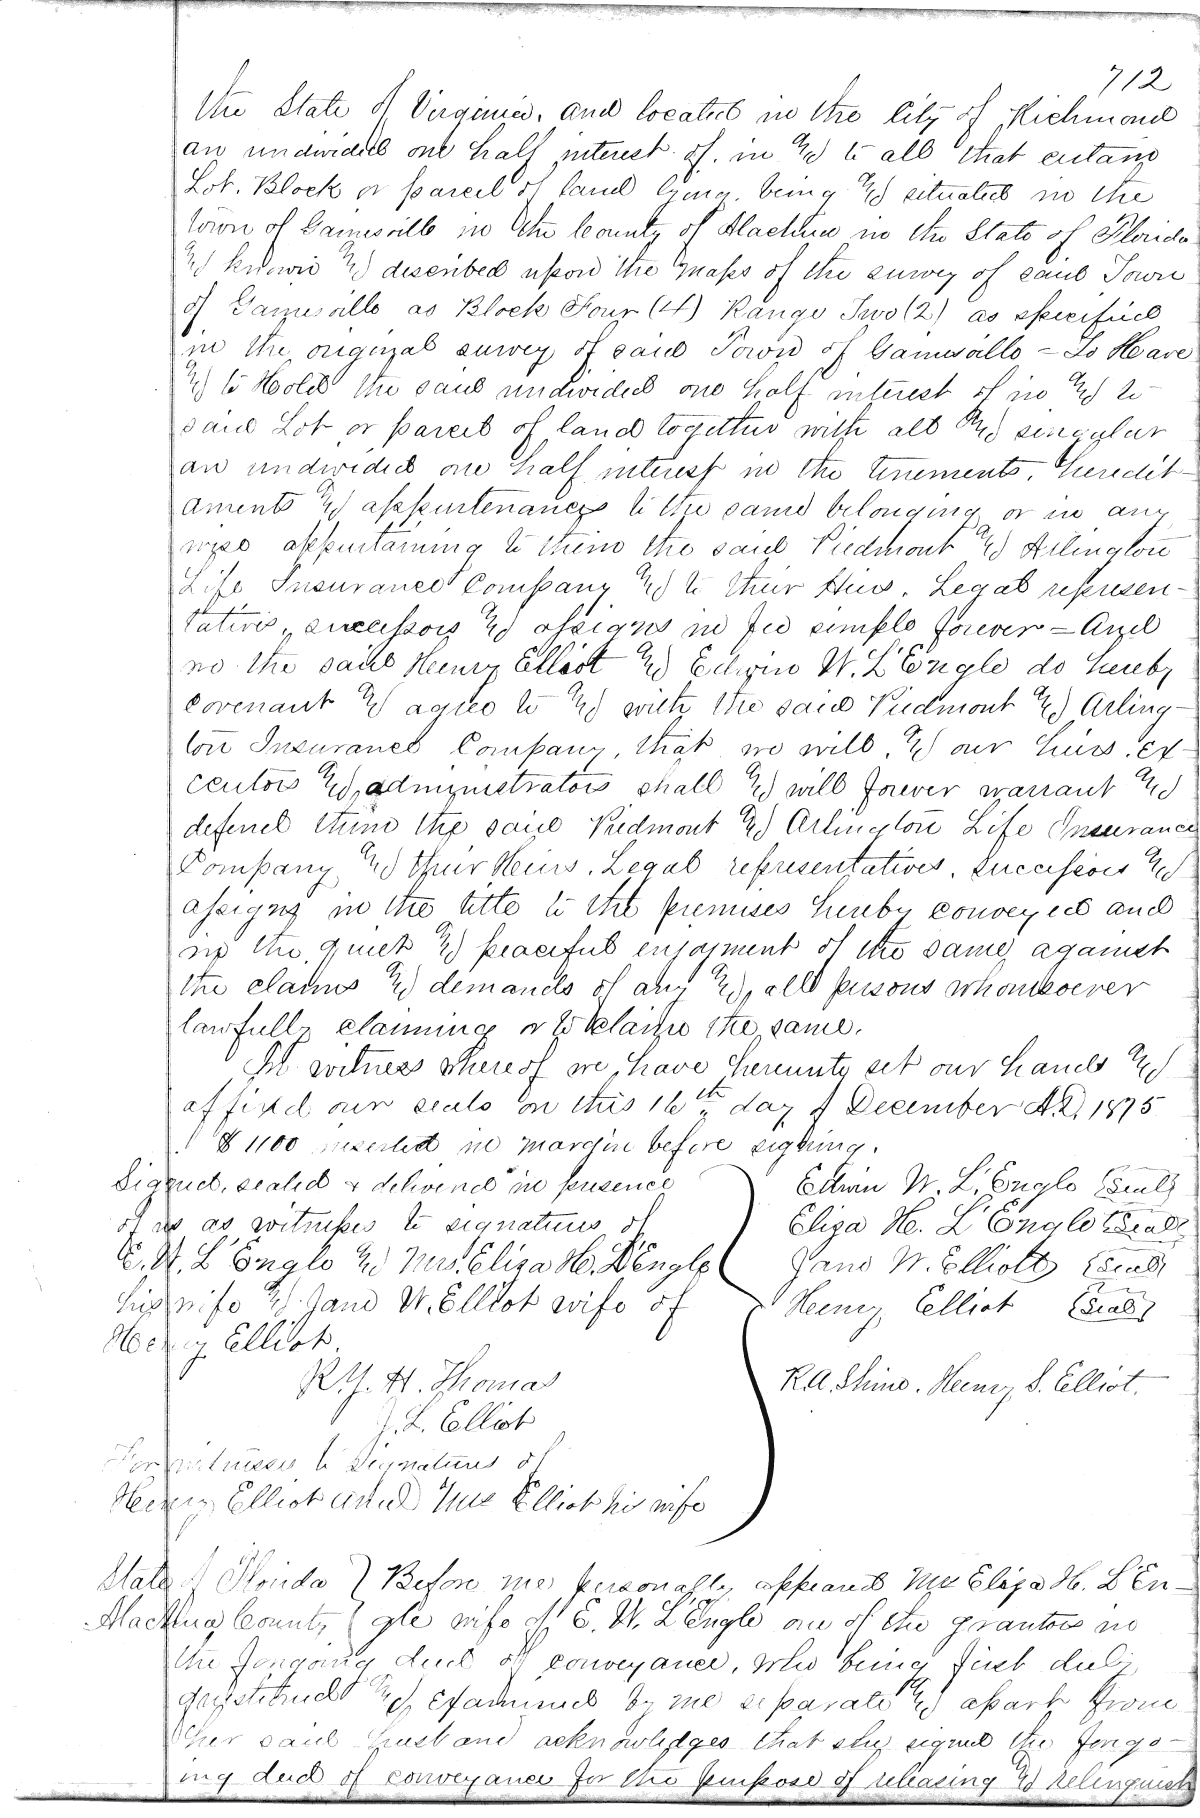 712
the State of Virginia, and located in the City of Richmond
an undivided one half interest of, in & to all that certain
Lot, Block or parcel of land lying, being & situated in the
Town of Gainesville in the County of Alachua in the State of Florida
& known & described upon the maps of the survey of said Town
of Gainesville as Block Four (4) Range Two (2) as specified
in the original survey of said Town of Gainesville = To Have
& to Hold the said undivided one half interest of in & to
said Lot or parcel of land together with all & singular
an undivided one half interest in the tenements, heredit-
aments & appurtenances to the same belonging or in any
wise appurtaining to them the said Piedmont & Arlington
Life Insurance Company & to their Heirs, Legal represen-
tatives, successors & assigns in fee simple forever = And
we the said Henry Elliot & Edwin W. L'Engle do hereby
covenant & agree to & with the said Piedmont & Arling-
ton Insurance Company, that we will, & our heirs, ex-
ecutors & administrators shall & will forever warrant &
defend them the said Piedmont & Arlington Life Insurance
Company & their Heirs, Legal representatives, successors &
assigns in the title to the premises hereby conveyed and
in the quiet & peaceful enjoyment of the same against
the claims & demands of any & all persons whomsoever
lawfully claiming or to claim the same.
In witness whereof we have hereunto set our hands &
affixed our seals on this 16th day of December A.D. 1875
$1100 inserted in margin before signing.
Signed, sealed & delivered in presence
of us as witnesses to signatures of
E. W. L'Engle & Mrs. Eliza H. L'Engle
his wife & Jane W. Elliot wife of
Henry Elliot.
R. Y. H. Thomas
J. L. Elliot
For witnesses to signatures of
Henry Elliot and Mrs Elliot his wife
Edwin W. L'Engle {Seal}
Eliza H. L'Engle {Seal}
Jane W. Elliott {Seal}
Henry Elliot {Seal}
R. A. Shine. Henry S. Elliot.
State of Florida } Before me personally appeared Mrs Eliza H. L'En-
Alachua County { gle wife of E. W. L'Engle one of the grantors in
the foregoing deed of conveyance, who being first duly
questioned & examined by me separate & apart from
her said husband acknowledges that she signed the forego-
ing deed of conveyance for the purpose of releasing & relinquish